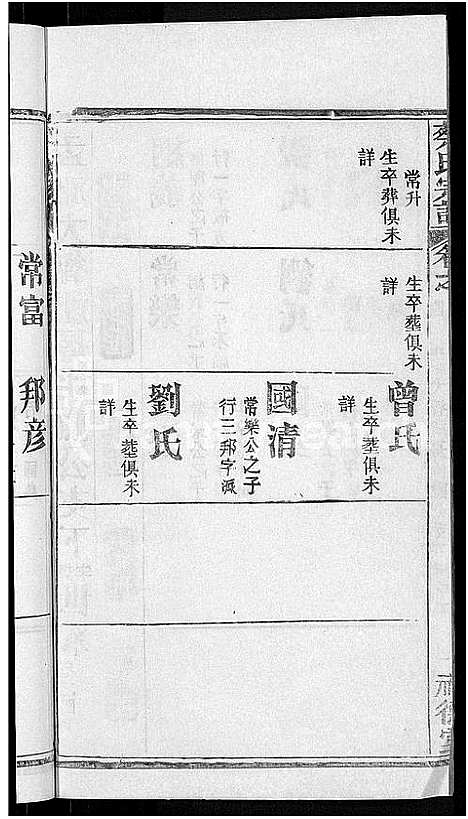 常升
生卒葬俱未
詳
生卒葬俱未
詳
曾氏
生卒葬俱未
詳
國清
常樂公之子
行三邦字派
劉氏
生卒葬俱未
詳
常富
邦彦